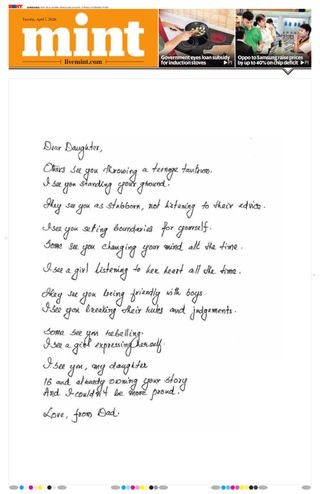 mint
Tuesday, April 7, 2026
mint
livemint.com
Government eyes loan subsidy
for induction stoves ▶P1
Oppo to Samsung raise prices
by up to 40% on chip deficit ▶P1
Dear Daughter,
Others see you throwing a teenage tantrum.
I see you standing your ground.
They see you as stubborn, not listening to their advice.
I see you setting boundaries for yourself.
Some see you changing your mind all the time.
I see a girl listening to her heart all the time.
They see you being friendly with boys.
I see you breaking their rules and judgements.
Some see you rebelling.
I see a girl expressing herself
I see you, my daughter
16 and already owning your story
And I couldn't be more proud.
Love, from Dad.